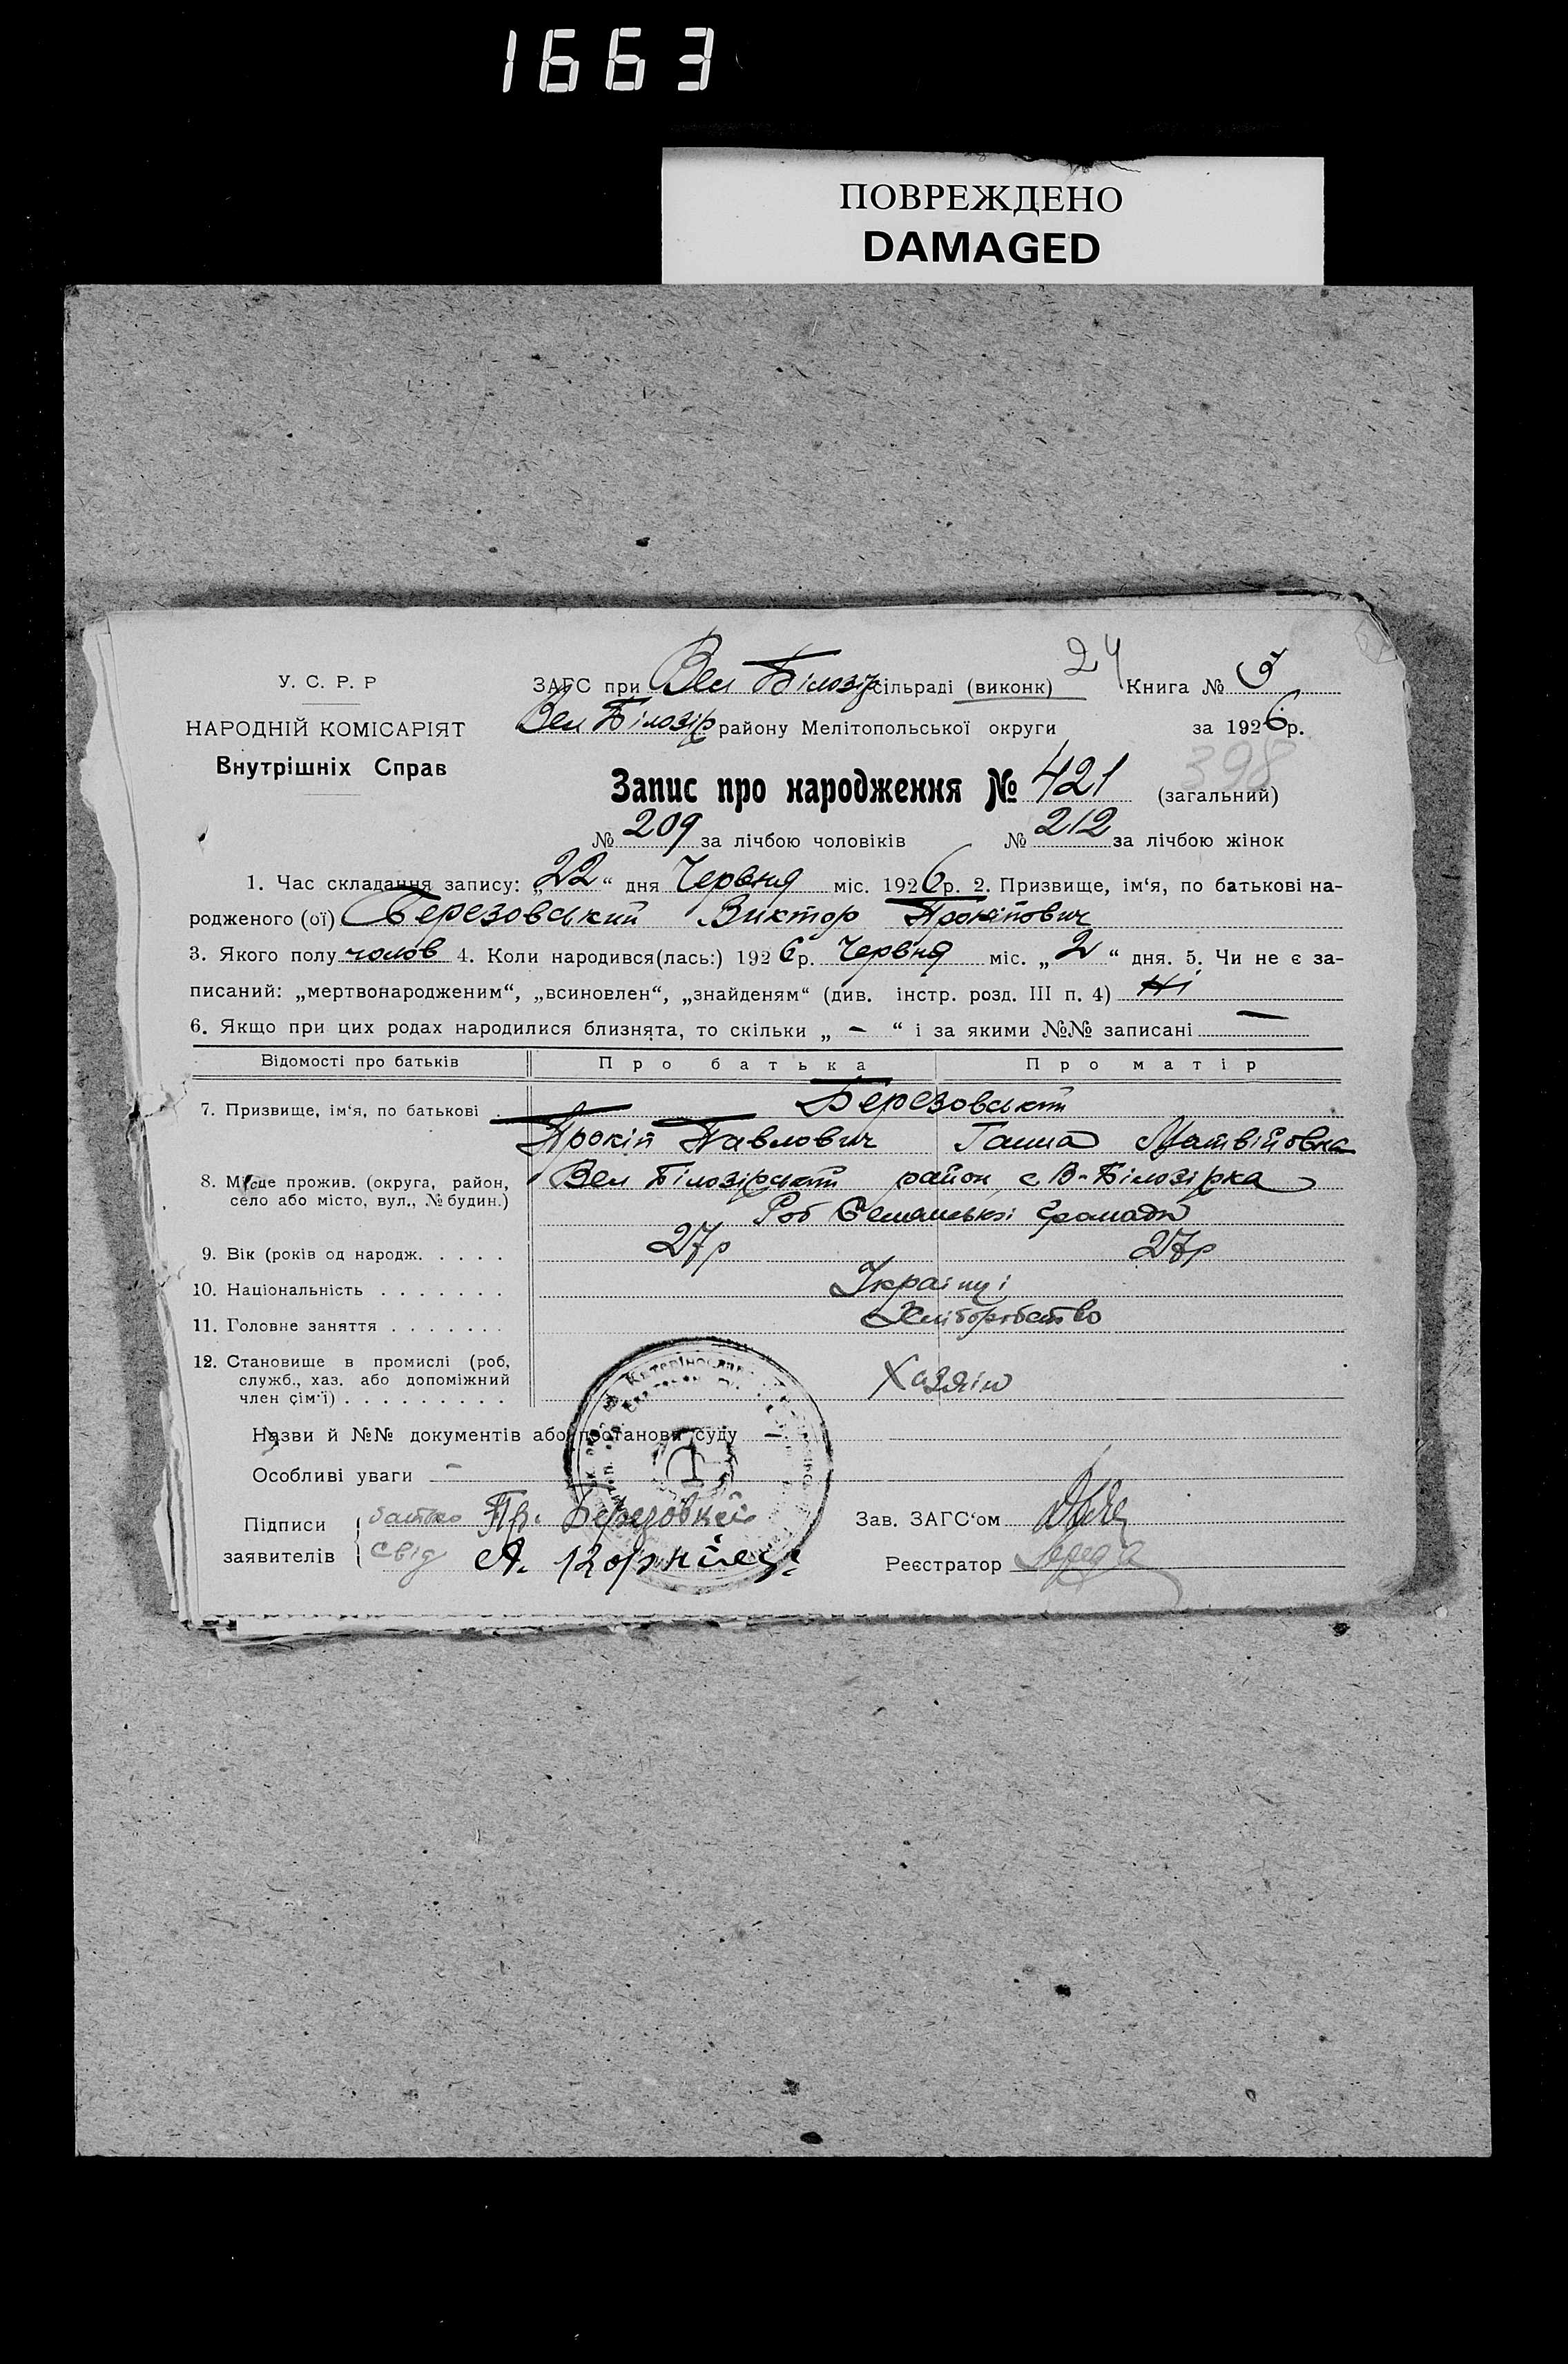 1663
ПОВРЕЖДЕНО
DAMAGED
24
У. С. Р. Р
ЗАГС при Вел Білозір сільраді (виконк) Книга № 5
НАРОДНІЙ КОМІСАРІЯТ
Вел Білозір району Мелітопольської округи за 1926 р.
Внутрішніх Справ
398
Запис про народження № 421 (загальний)
№ 209 за лічбою чоловіків № 212 за лічбою жінок
1. Час складання запису: „22“ дня Червня міс. 1926 р. 2. Призвище, ім‘я, по батькові на-
родженого (ої) Березовський Виктор Прокіпович
3. Якого полу чолов 4. Коли народився(лась:) 1926 р. Червня міс. „2“ дня. 5. Чи не є за-
писаний: „мертвонародженим“, „всиновлен“, „знайденям“ (див. інстр. розд. III п. 4) Ні
6. Якщо при цих родах народилися близнята, то скільки „ – “ і за якими №№ записані –
Відомості про батьків Про батька Про матір
7. Призвище, ім‘я, по батькові . Березовський
Прокіп Павлович Ганна Матвійовна
8. Місце прожив. (округа, район, село або місто, вул., № будин.) Вел Білозірський район с В-Білозірка
громади
9. Вік (років од народж. . . . . 27 р 27 р
10. Національність . . . . . . . Українці
11. Головне заняття . . . . . . . Хліборобство
12. Становище в промислі (роб,
служб., хаз. або допоміжний
член сім‘ї) . . . . . . . . . Хазяін
Назви й №№ документів або постанови суду –
Особливі уваги –
Підписи батько Пр. Березовкей Зав. ЗАГС‘ом
заявителів свід А. Корнієц Реєстратор Середа